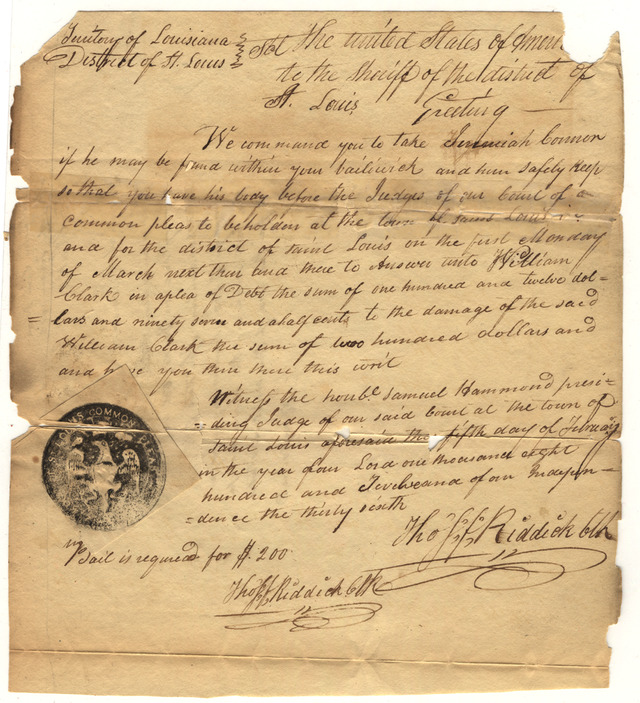 Territory of Louisiana
District of St. Louis
Sct The United States of Amer
to the Sheriff of the district of
St. Louis Greeting
We command you to take Jeremiah Connor
if he may be found within your bailiwick and him safely keep
so that you have his body before the Judges of our Court of
common pleas to beholden at the town of Saint Louis in
and for the district of Saint Louis on the first Monday
of March next then and there to Answer unto William
Clark in aplea of Debt the sum of one hundred and twelve dol=
=lars and ninety seven and a half cents to the damage of the said
William Clark the sum of two hundred dollars and
and have you then there this writ
Witness the honble. Samuel Hammond presi=
=ding Judge of our said Court at the town of
Saint Louis aforesaid the fifth day of February
in the year of our Lord one thousand eight
hundred and Twelve and of our Indepen=
=dence the thirty sixth
Tho. F. Riddick Clk
Bail is required for $.200.
Tho F. Riddick Clk
COMMON PLEAS